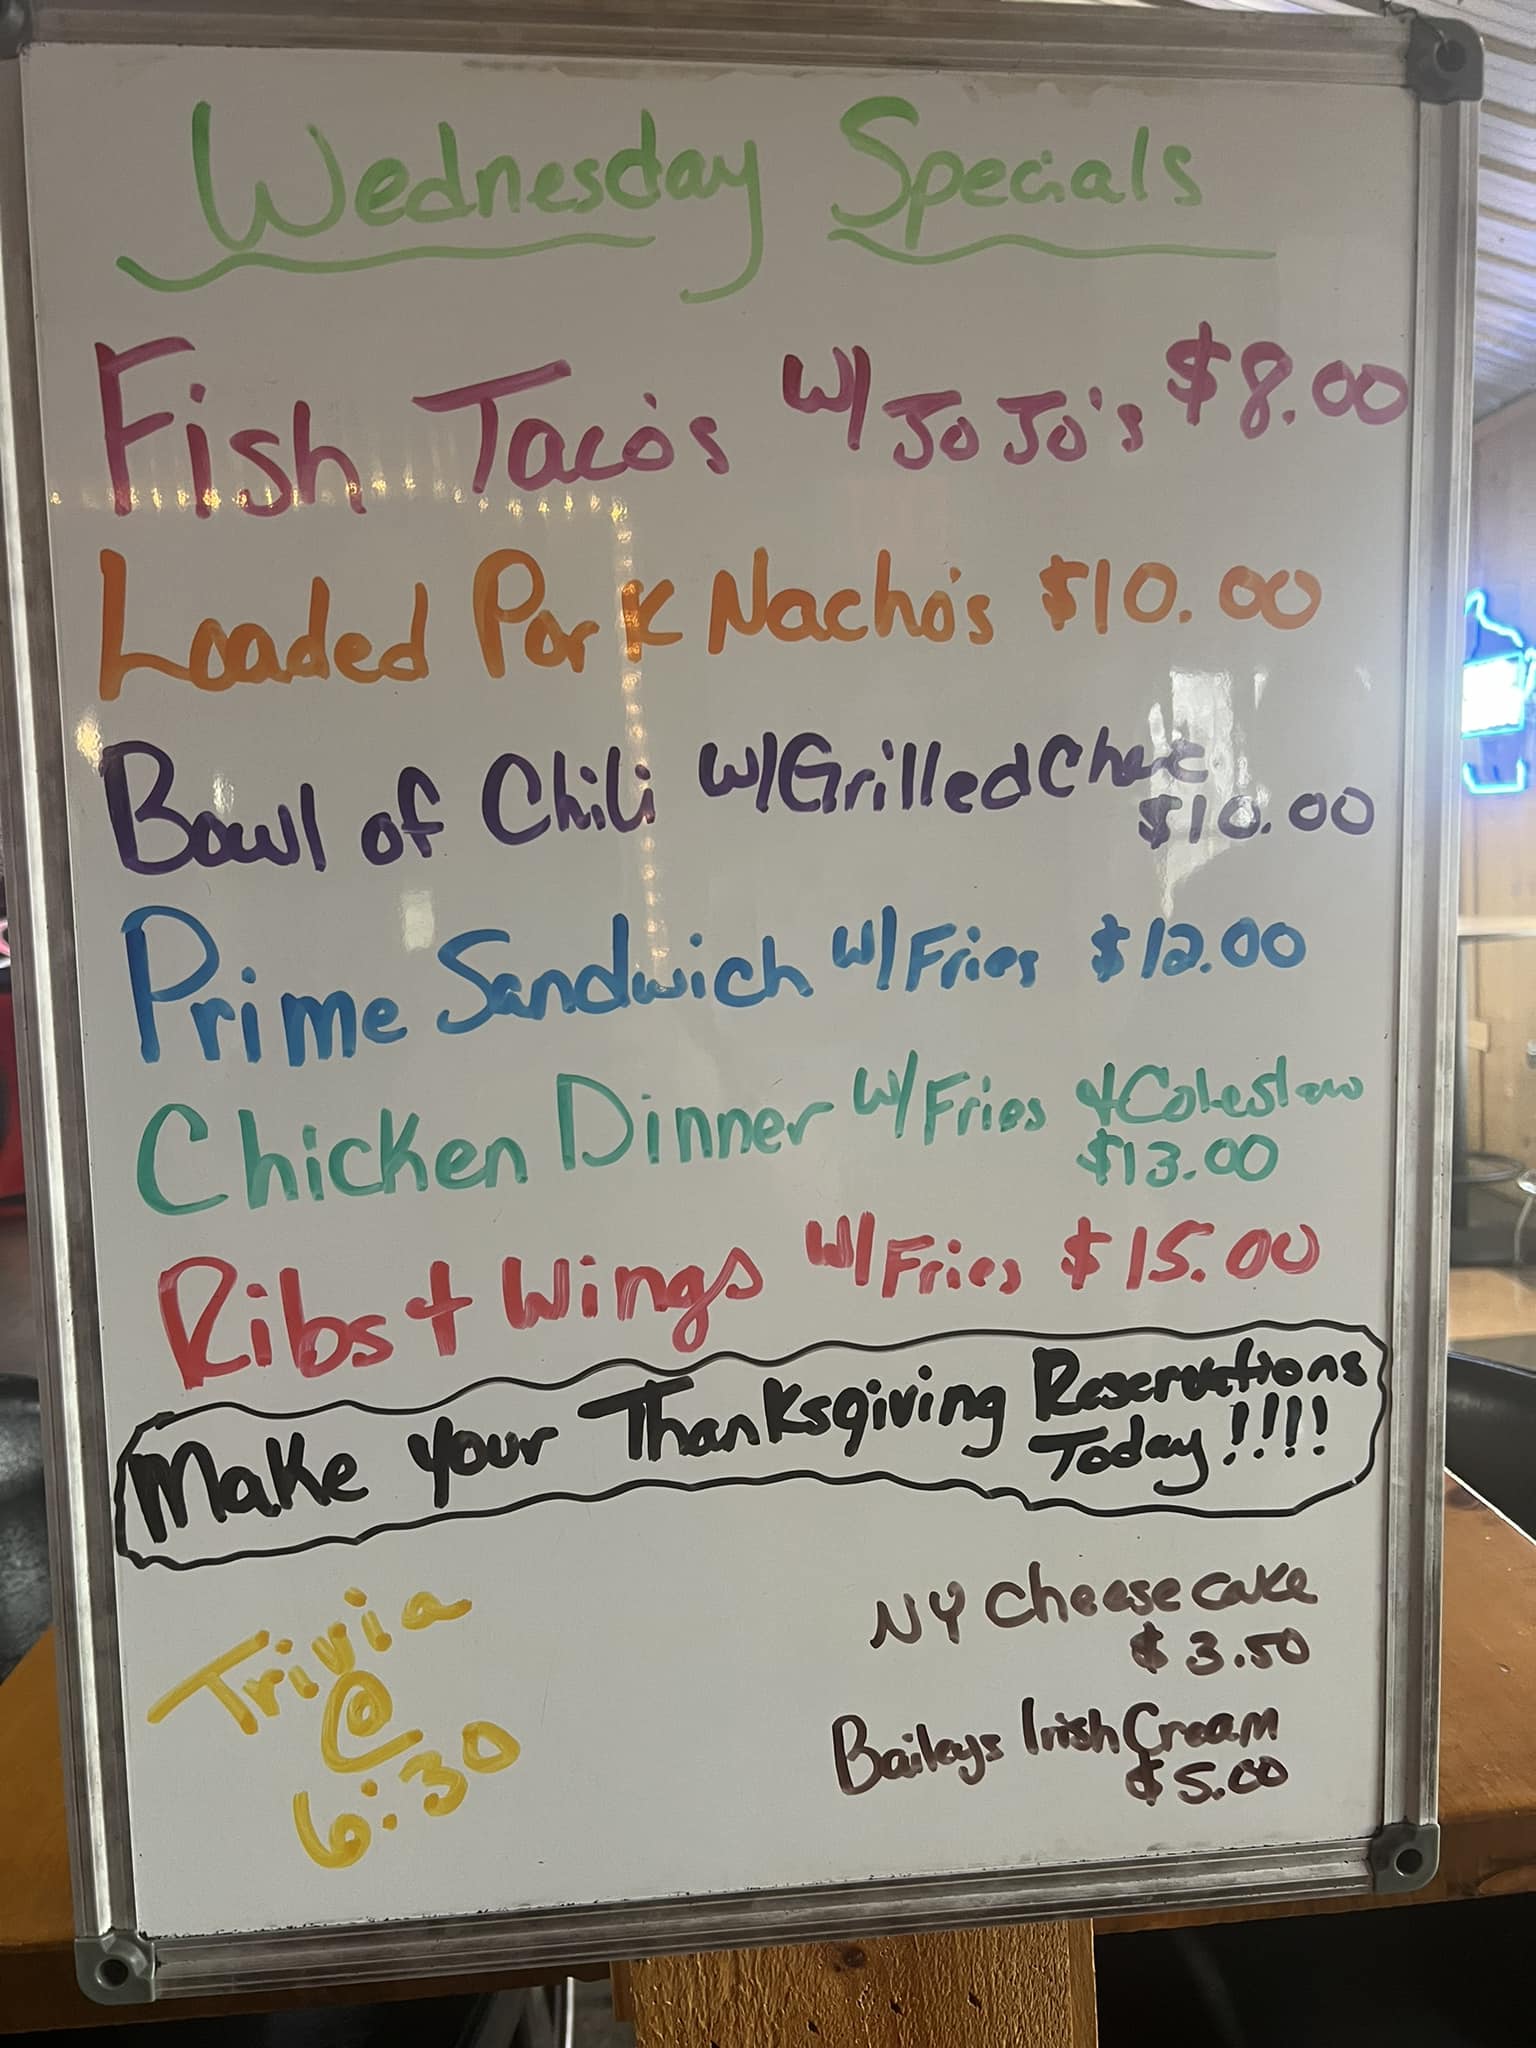 Wednesday Specials
Fish Taco's w/ JoJo's $8.00
Loaded Pork Nacho's $10.00
Bowl of Chili w/ Grilled Chee
$10.00
Prime Sandwich w/ Fries $12.00
Chicken Dinner w/ Fries & Coleslaw
$13.00
Ribs & Wings w/ Fries $15.00
Make your Thanksgiving Reservations
Today!!!!
Trivia
@
6:30
NY Cheese cake
$3.50
Baileys Irish Cream
$5.00